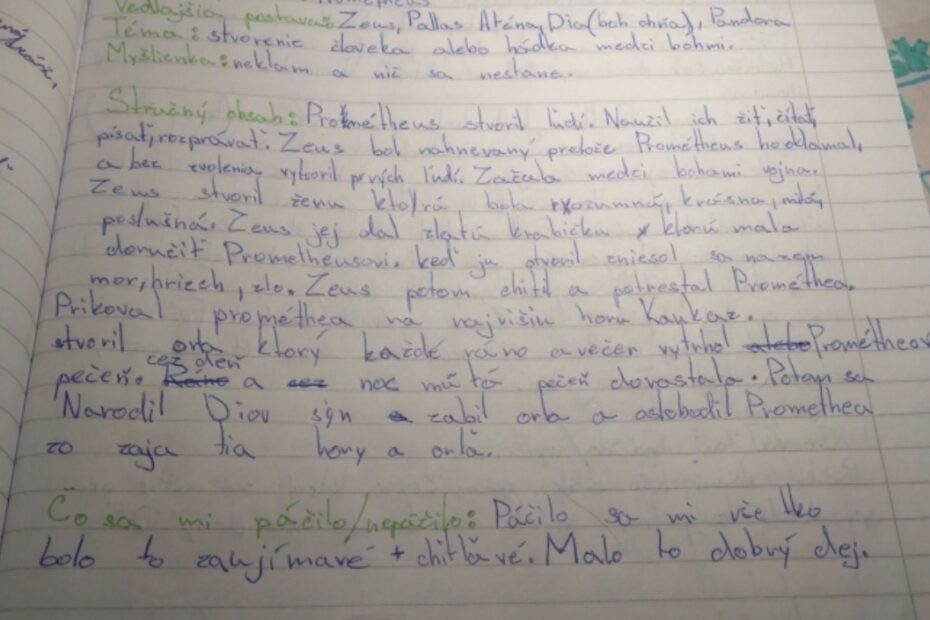 Prometheus
Vedlajšia postava: Zeus, Pallas Aténa, Dia (boh ohňa), Pandora
Téma: stvorenie človeka alebo hádka medzi bohmi.
Myšlienka: neklam a nič sa nestane.
Stručný obsah: Prométheus stvoril ľudí. Naučil ich žiť, čítať,
písať, rozprávať. Zeus bol nahnevaný pretože Prométheus ho oklamal,
a bez zvolenia vytvoril prvých ľudí. Začala medzi bohami vojna.
Zeus stvoril ženu ktorá bola rozumná, krásna, milá,
poslušná. Zeus jej dal zlatú krabičku ktorú mala
doručiť Prometheusovi. keď ju otvoril zniesol sa na zem
mor, hriech, zlo. Zeus potom chitil a potrestal Prométhea.
Prikoval prométhea na najvišiu horu Kaukaz.
stvoril orla ktorý každé ráno a večer vytrhol alebo Prométheov
cez deň
pečeň. a noc mu tá pečeň dorastala. Potom sa
Narodil Diov syn zabil orla a oslobodil Promethea
zo zaja tia hory a orla.
Čo sa mi páčilo/nepáčilo: Páčilo sa mi vše tko
bolo to zaujímavé + chitľavé. Malo to dobrý dej.